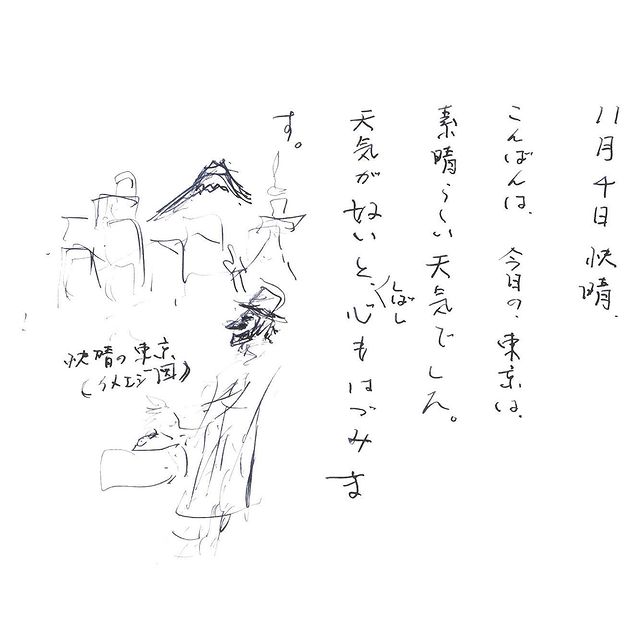 八月十日 快晴.
こんばんは、今日の、東京は、
素晴らしい天気でした。
天気が好いと、しばし心もはづみま
す。
快晴の東京
(イメエジ図)